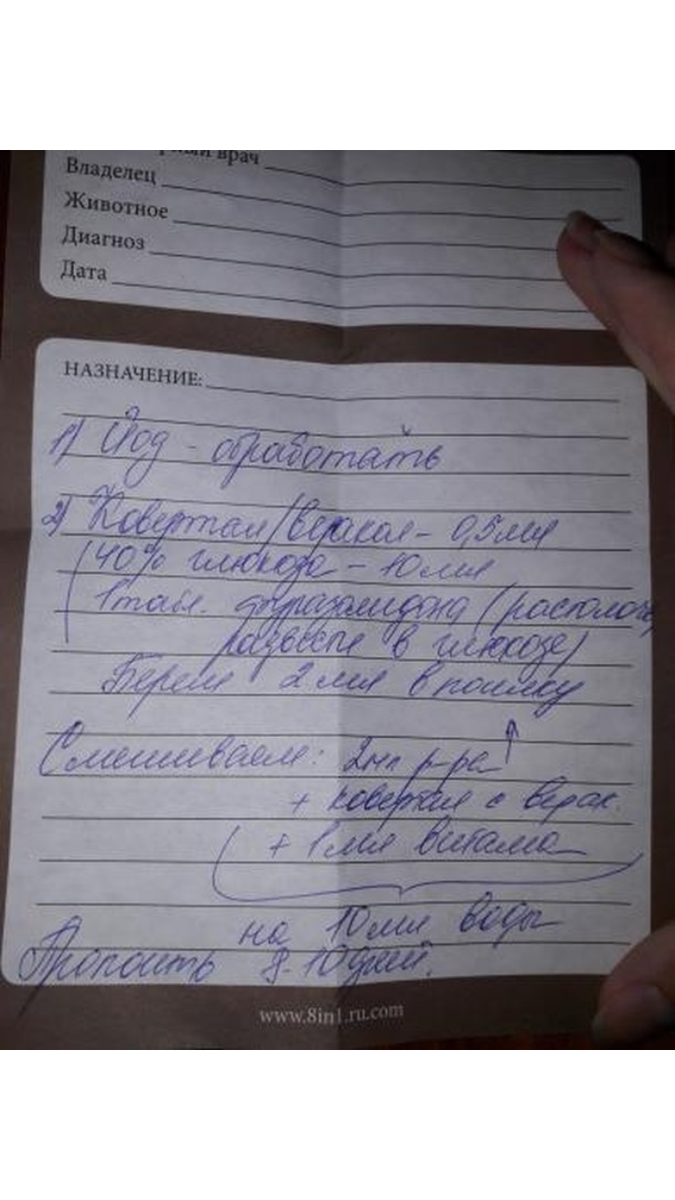 врач
Владелец
Животное
Диагноз
Дата
НАЗНАЧЕНИЕ:
1) Йод - обработать
2) Ковертал/веракол - 0,5 мл
40% глюкоза - 10 мл
1 табл. фуразолидона (растолочь,
развести в глюкозе)
Берем 2 мл в поилку
Смешиваем: 2 мл р-ра
+ ковертал с верак.
+ 1 мл витама
на 10 мл воды
Пропоить 8-10 дней.
www.8in1.ru.com